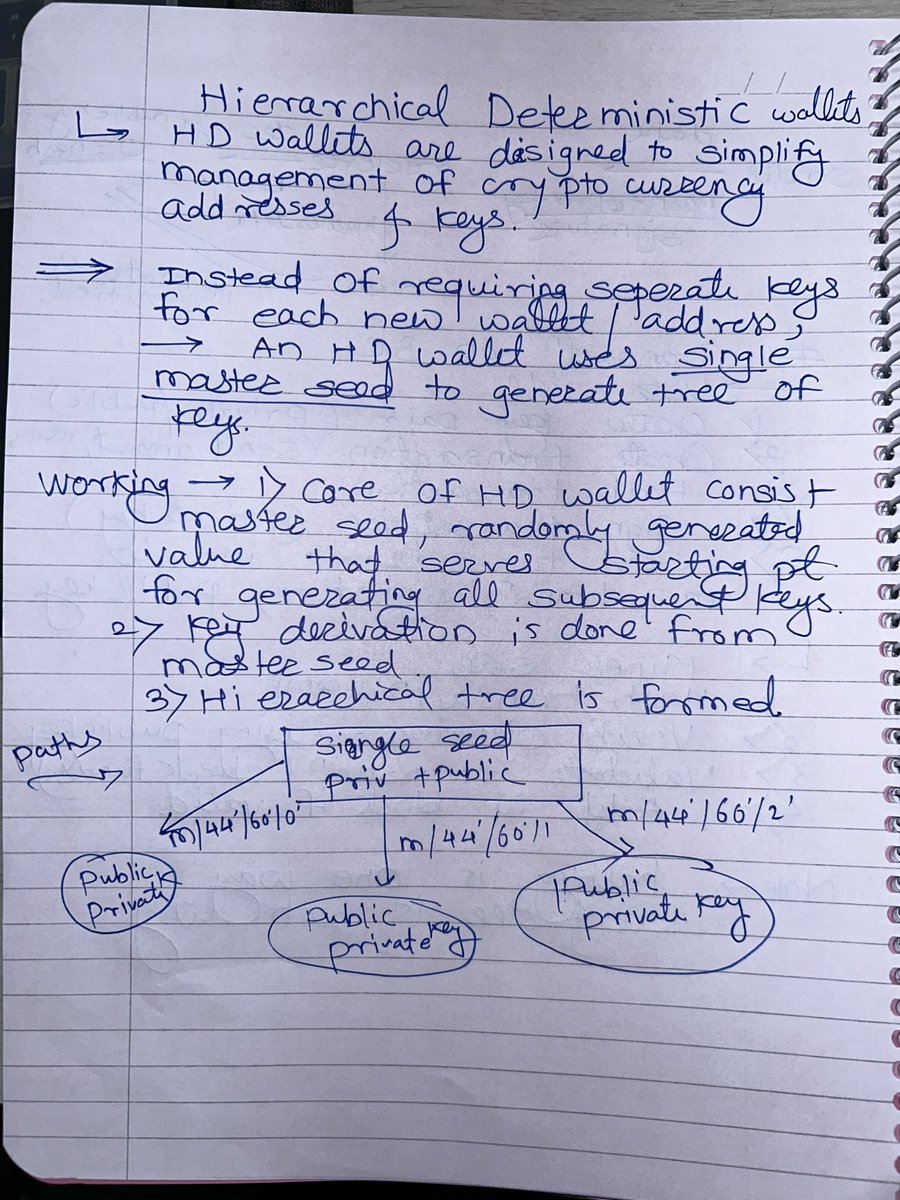 / /
Hierarchical Deterministic wallets
HD wallets are designed to simplify
management of crypto currency
addresses & keys.
Instead of requiring seperate keys
for each new wallet / address,
→ An HD wallet uses single
master seed to generate tree of
keys.
Working → 1) Core of HD wallet consist
master seed, randomly generated
value that serves starting pt
for generating all subsequent keys.
2) Key derivation is done from
master seed
3) Hierarchical tree is formed.
paths
single seed
priv + public
m/44'/60'/0'
m/44'/60'/1
m/44'/60'/2'
public
private
public
private key
public
private key